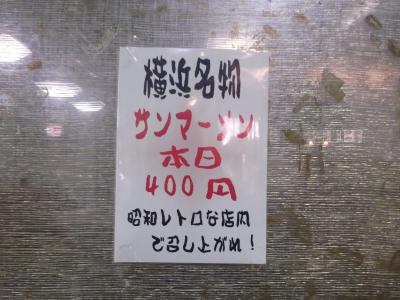 横浜名物
サンマーメン
本日
400円
昭和レトロな店内
で召し上がれ！